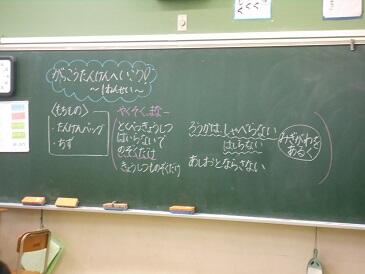 がっこうたんけんへいこう
〜1ねんせい〜
〈もちもの〉
・たんけんバッグ
・ちず
やくそく・まなー
とくべつきょうしつ
はいらないで
のぞくだけ
きょうしつものぞくだけ
ろうかは、しゃべらない
はしらない
みぎがわを
あるく
あしおとならさない